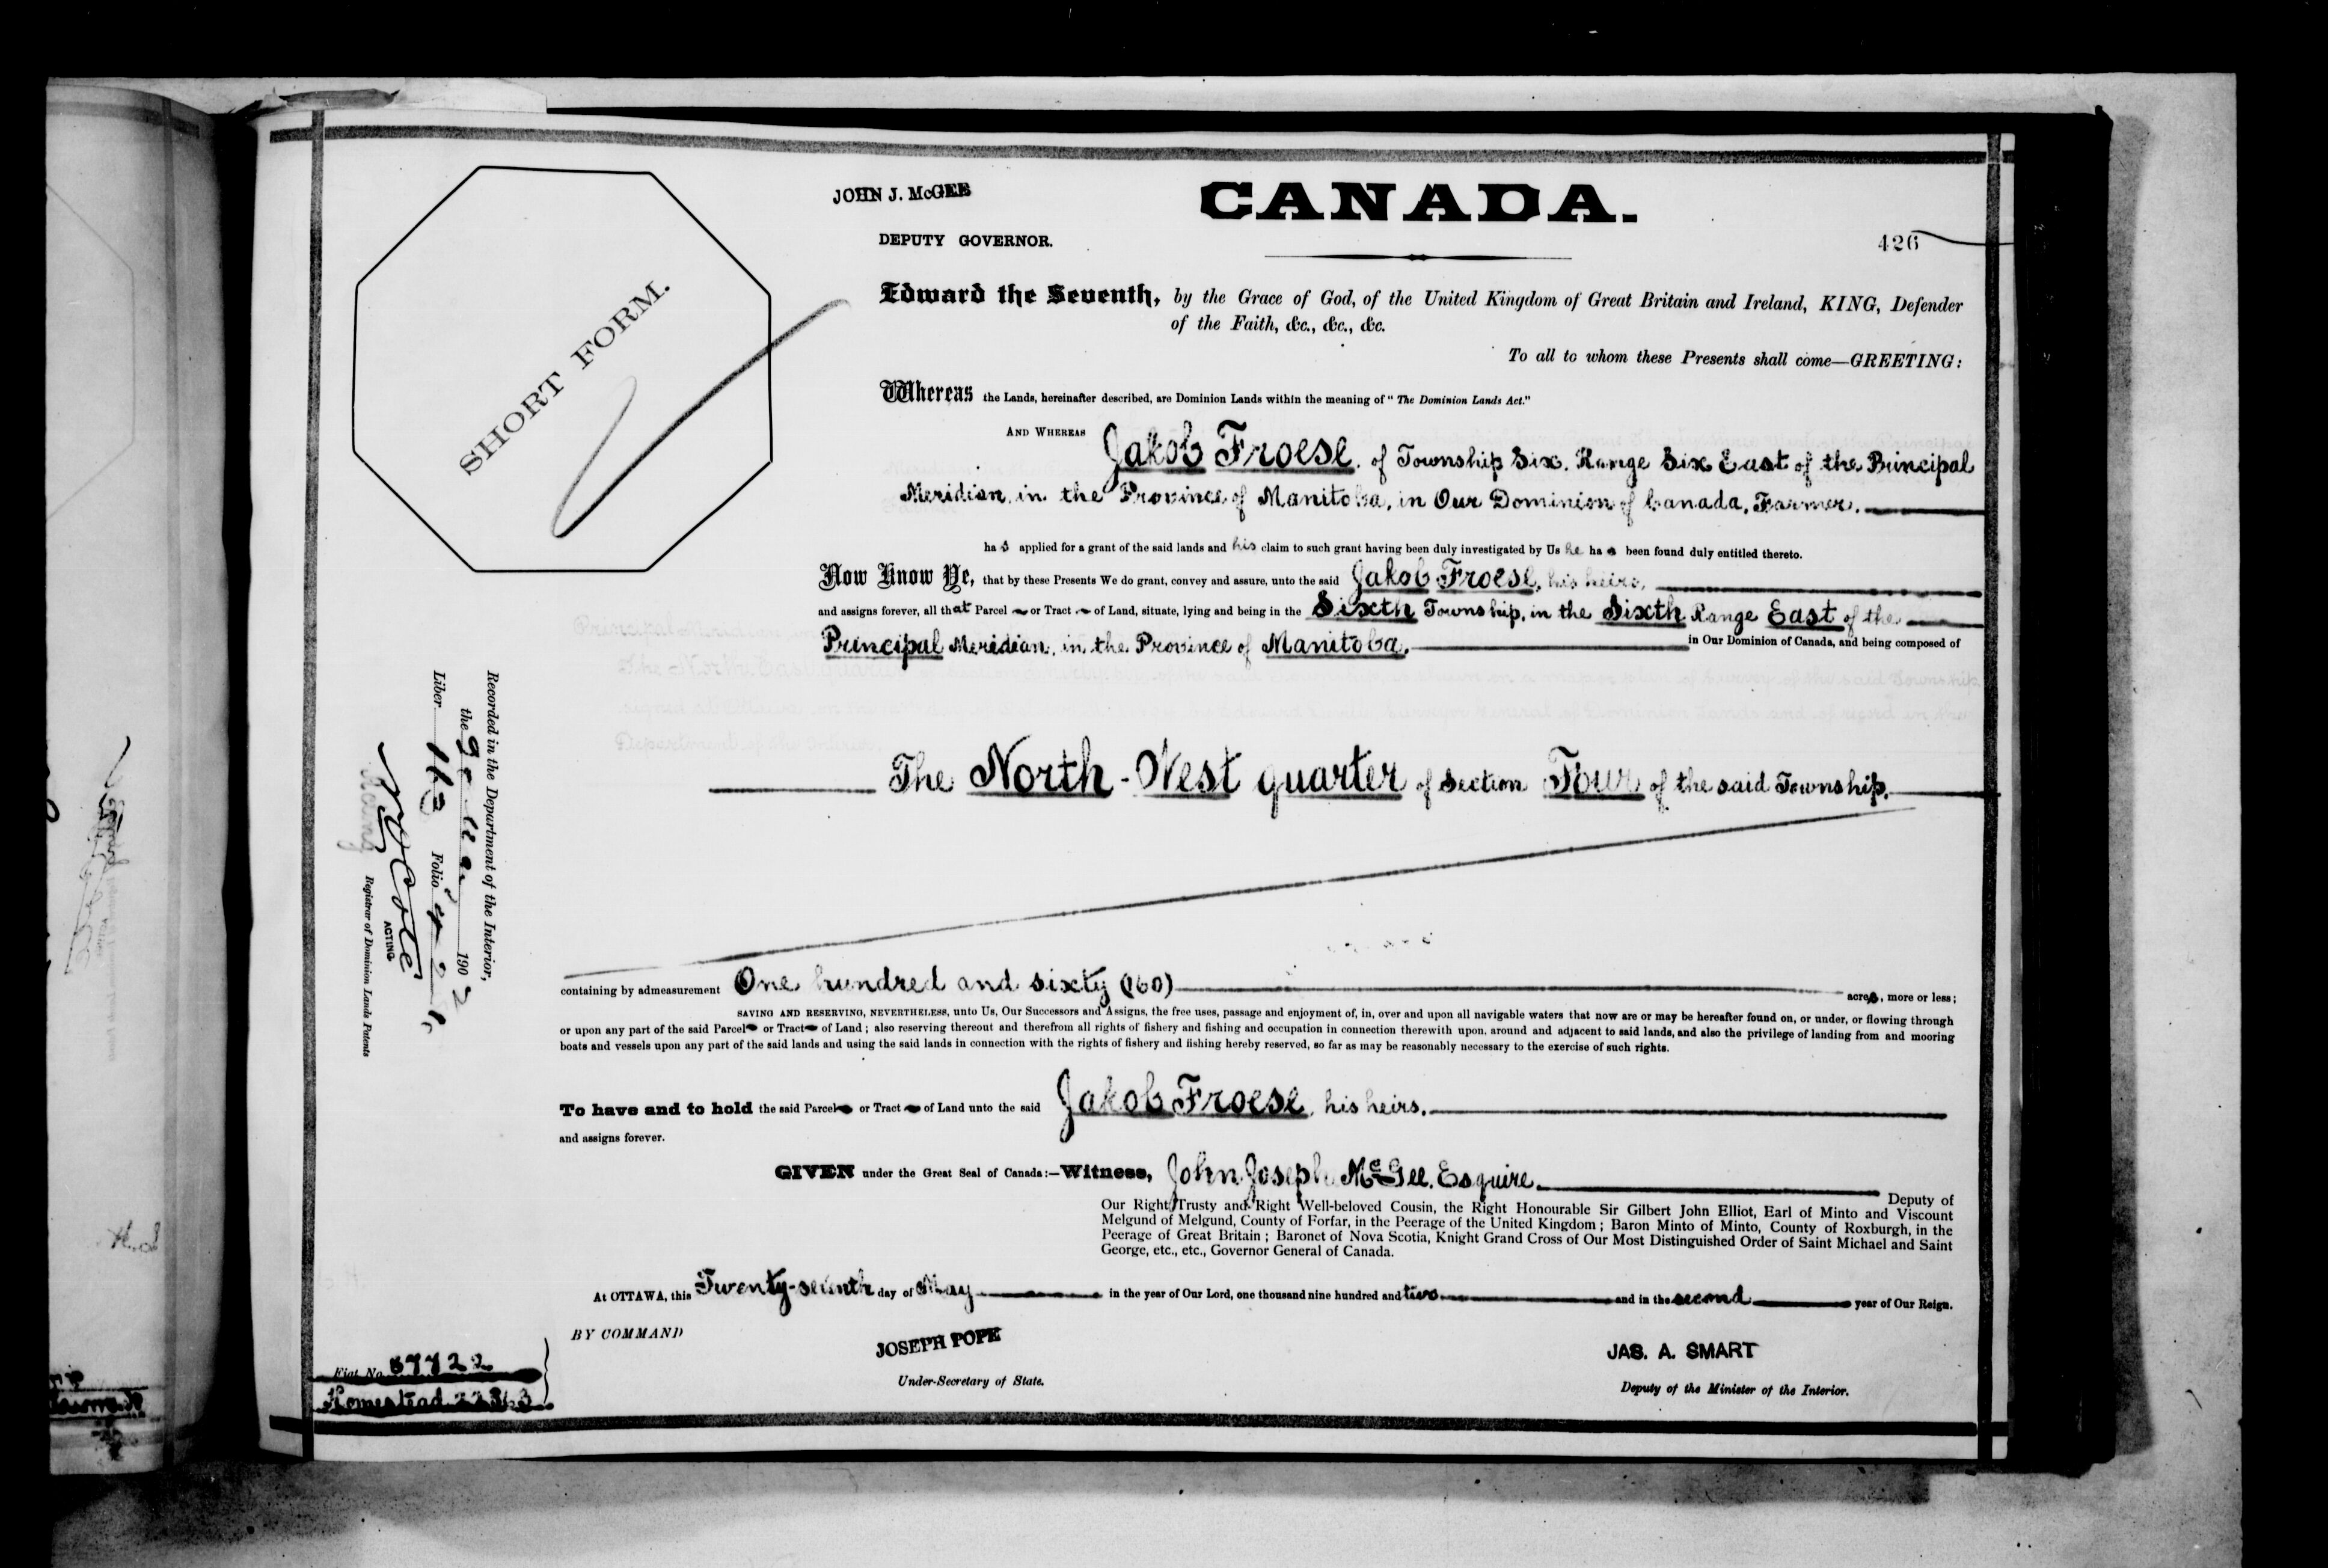 JOHN J. McGEE
CANADA.
DEPUTY GOVERNOR.
426
SHORT FORM.
Edward the Seventh, by the Grace of God, of the United Kingdom of Great Britain and Ireland, KING, Defender
of the Faith, &c., &c., &c.
To all to whom these Presents shall come—GREETING:
Whereas the Lands, hereinafter described, are Dominion Lands within the meaning of "The Dominion Lands Act."
AND WHEREAS Jakob Froese, of Township Six, Range Six East of the Principal
Meridian, in the Province of Manitoba, in Our Dominion of Canada, Farmer.
has applied for a grant of the said lands and his claim to such grant having been duly investigated by Us he has been found duly entitled thereto.
Now Know Ye, that by these Presents We do grant, convey and assure, unto the said Jakob Froese, his heirs,
and assigns forever, all that Parcel or Tract of Land, situate, lying and being in the Sixth Township, in the Sixth Range East of the
Principal Meridian, in the Province of Manitoba, in Our Dominion of Canada, and being composed of
The North-West quarter of Section Four of the said Township.
containing by admeasurement One hundred and sixty (160) acres, more or less;
SAVING AND RESERVING, NEVERTHELESS, unto Us, Our Successors and Assigns, the free uses, passage and enjoyment of, in, over and upon all navigable waters that now are or may be hereafter found on, or under, or flowing through
or upon any part of the said Parcel or Tract of Land; also reserving thereout and therefrom all rights of fishery and fishing and occupation in connection therewith upon, around and adjacent to said lands, and also the privilege of landing from and mooring
boats and vessels upon any part of the said lands and using the said lands in connection with the rights of fishery and fishing hereby reserved, so far as may be reasonably necessary to the exercise of such rights.
To have and to hold the said Parcel or Tract of Land unto the said Jakob Froese, his heirs,
and assigns forever.
GIVEN under the Great Seal of Canada:—Witness, John Joseph McGee, Esquire.
Deputy of
Our Right Trusty and Right Well-beloved Cousin, the Right Honourable Sir Gilbert John Elliot, Earl of Minto and Viscount
Melgund of Melgund, County of Forfar, in the Peerage of the United Kingdom; Baron Minto of Minto, County of Roxburgh, in the
Peerage of Great Britain; Baronet of Nova Scotia, Knight Grand Cross of Our Most Distinguished Order of Saint Michael and Saint
George, etc., etc., Governor General of Canada.
At OTTAWA, this Twenty-seventh day of May in the year of Our Lord, one thousand nine hundred and two and in the second year of Our Reign.
BY COMMAND
JOSEPH POPE
Under-Secretary of State.
JAS. A. SMART
Deputy of the Minister of the Interior.
Fiat No. 57722
Homestead
Recorded in the Department of the Interior,
the 1902
Liber 163 Folio 426
N O Cote
ACTING
Registrar of Dominion Lands Patents